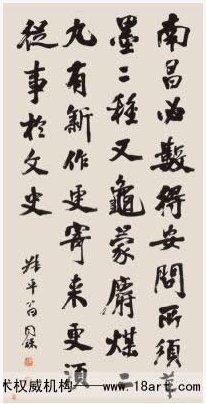 南昌必數得安問所須筆
墨二種又龜蒙麝煤二
九有新作更寄来更須
從事於文史
平翁同龢
术权威机构——www.18art.com